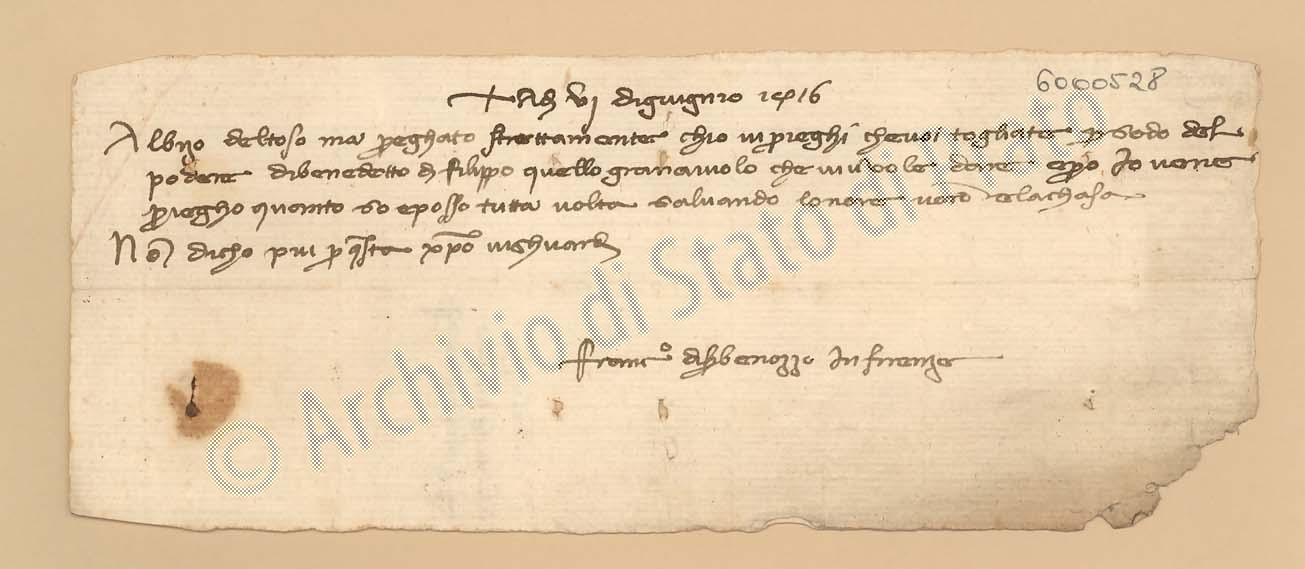 6000528
+ Adi VI di giugnio 1416
Albizo deltoso ma preghato strettamente chio vi prieghi che voi togliate p sodo del
podere di benedetto di filippo quello granaiuolo che vi vuole dare e pero Io vene
priegho quanto so e posso tutta volta salvando lonore vostro e la chasa
Non dicho piu p questa xpo vi ghuardi
Franc° di benozzo In firenze
© Archivio di Stato di Prato